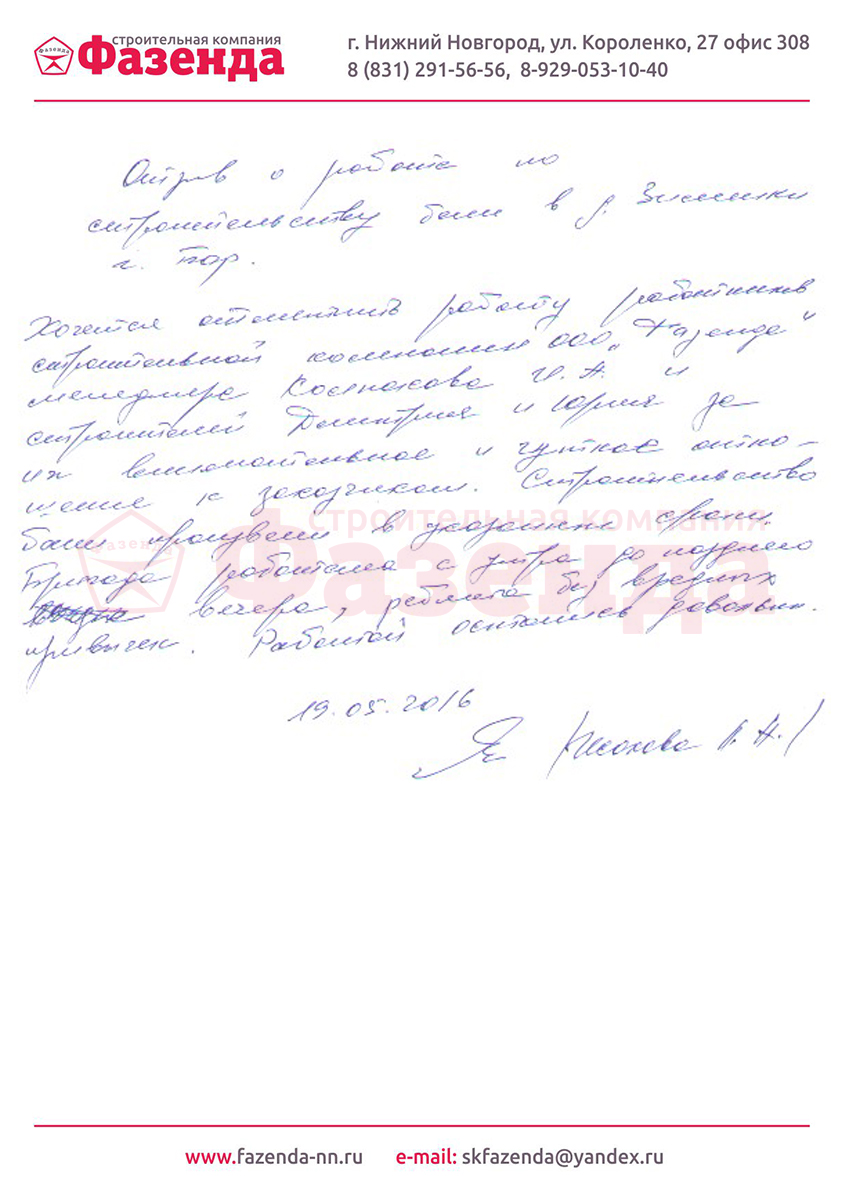 строительная компания
Фазенда
г. Нижний Новгород, ул. Короленко, 27 офис 308
8 (831) 291-56-56, 8-929-053-10-40
Отзыв о работе по
строительству бани в д.
г. Бор.
Хочется отметить работу работников
строительной компании ООО „Фазенда“
менеджера И. А. и
строителей Дмитрия и Юрия за
их внимательное и чуткое отно-
шение к заказчикам. Строительство
бани произвели в указанные сроки.
Бригада работала с утра до позднего
вечера, ребята без вредных
привычек. Работой остались довольны.
19.05.2016
строительная компания
Фазенда
www.fazenda-nn.ru e-mail: skfazenda@yandex.ru